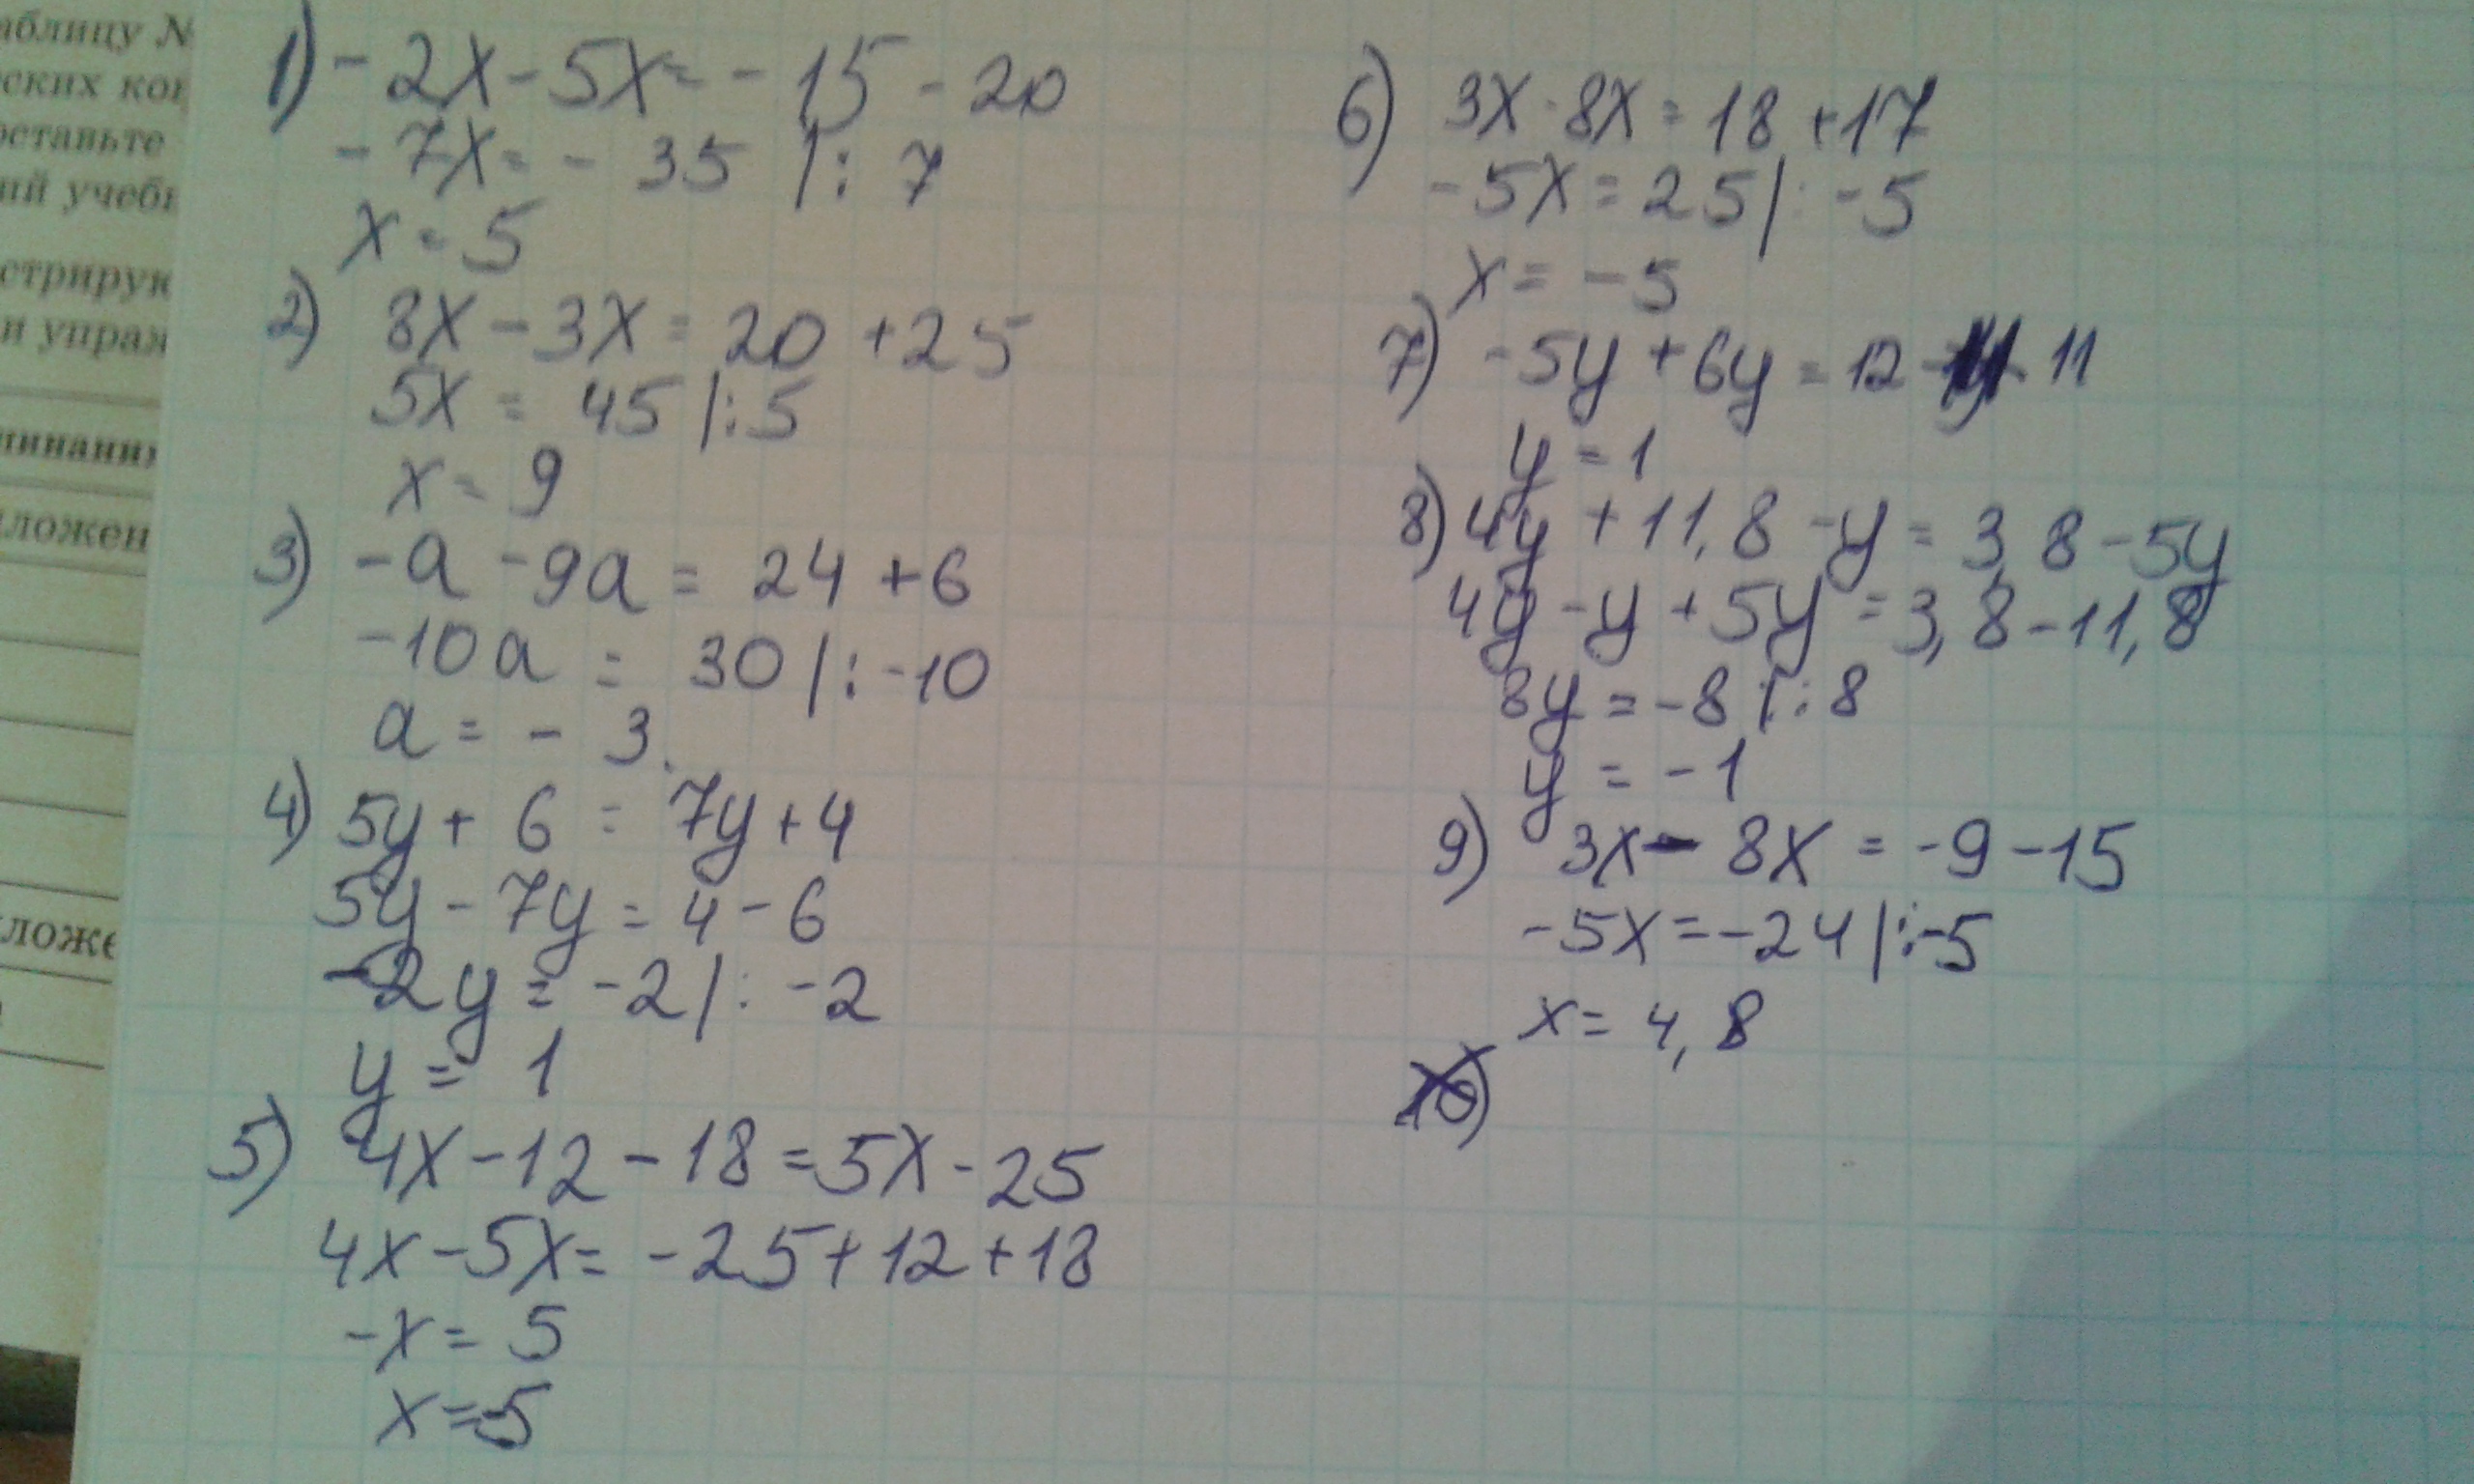 аблицу №
ских кон
оставьте
ий учебн
стрирую
и упраж
ложен
ложе
1) -2x-5x=-15-20
-7x=-35 |:7
x=5
2) 8x-3x=20+25
5x=45 |:5
x=9
3) -a-9a=24+6
-10a=30 |:-10
a=-3.
4) 5y+6=7y+4
5y-7y=4-6
-2y=-2 |:-2
y=1
5) 4x-12-18=5x-25
4x-5x=-25+12+18
-x=5
x=-5
6) 3x-8x=18+17
-5x=25 |:-5
x=-5
7) -5y+6y=12-11
y=1
8) 4y+11,8-y=3,8-5y
4y-y+5y=3,8-11,8
8y=-8 |:8
y=-1
9) 3x-8x=-9-15
-5x=-24 |:-5
x=4,8
10)